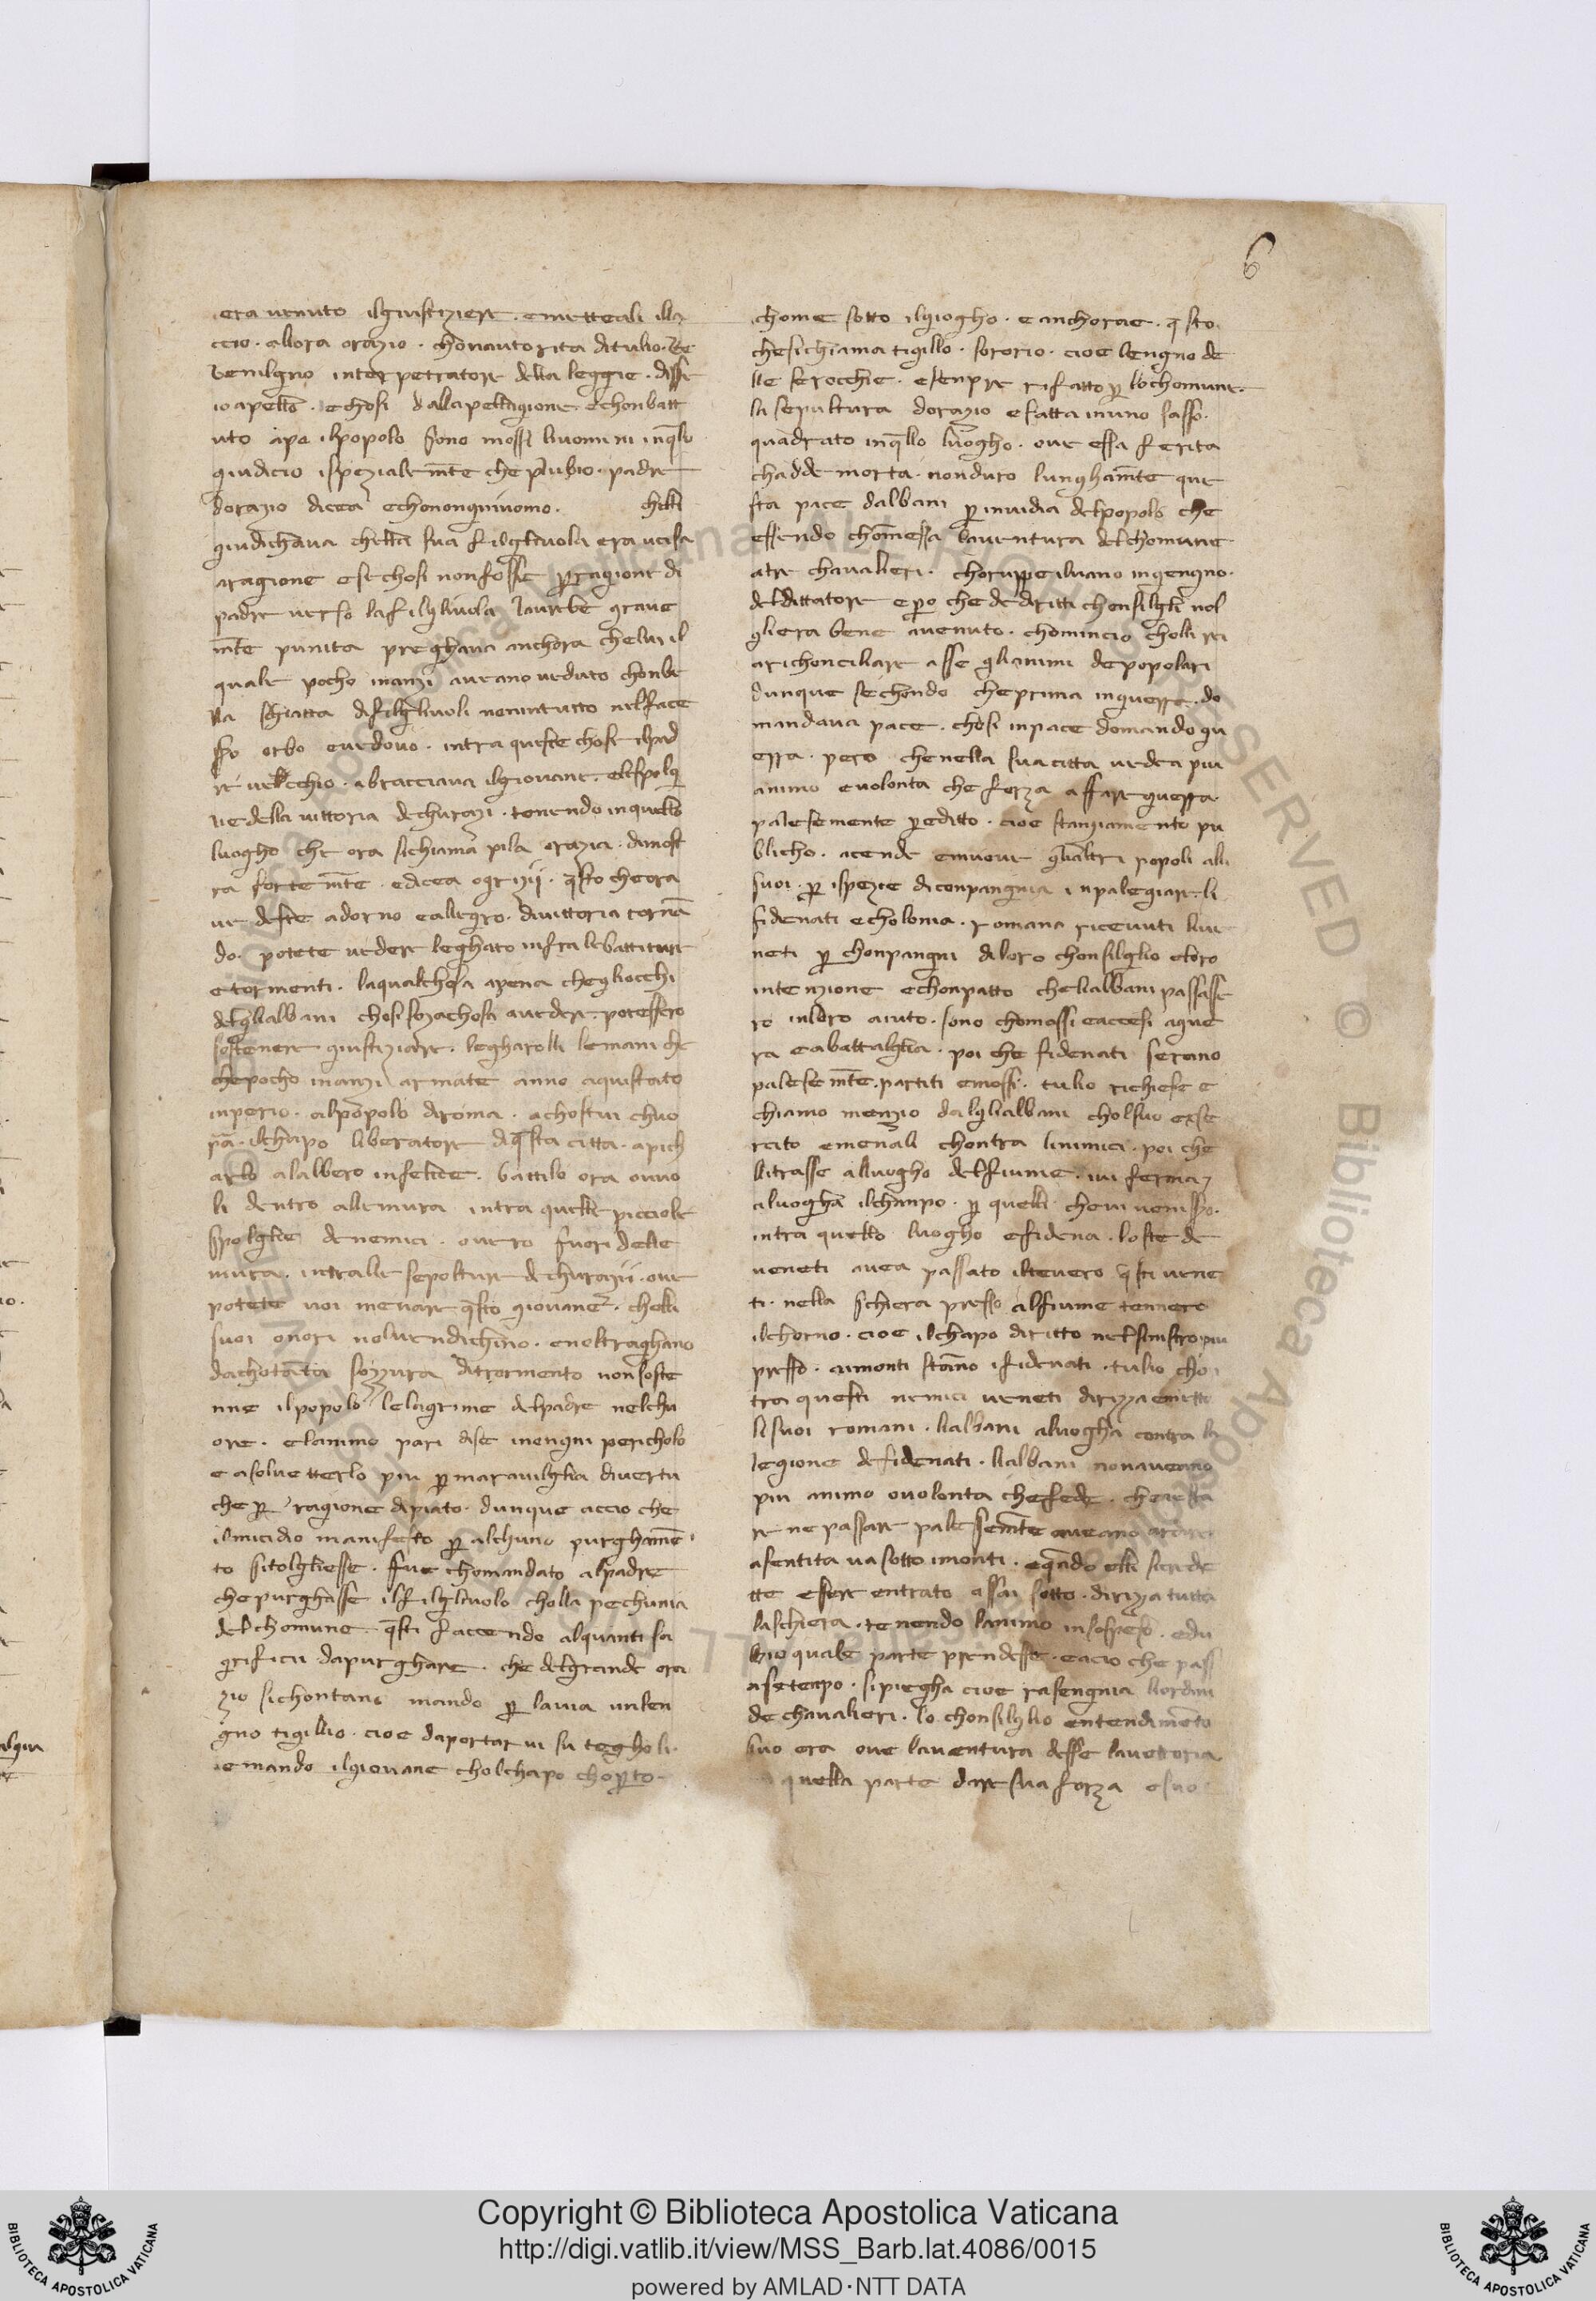 6
era venuto ilgiustiziere. emetteali illa
ccio. allora orazio. chonautorita ditulio. be
venilgno interpetratore della leggie. disse
io apello. echosi dallapellagione echonbatt
uto apo ilpopolo sono mossi liuomini inq̄llo
giudicio ispezialem̄te che plubio. padre
dorazio dicea echononquivomo. chelli
giudichava chella sua filgliuola era uccisa
aragione esechosi nonfosse p̄ragione di
padre verso lafilgliuola laurebe grave
m̄te punita preghava anchora chelui il
quale pocho inanzi aveano veduto chonbe
lla schiatta difilgliuoli nonintutto nelface
sso orbo evedovo. intra queste chose ilpad
re vecchio. abracciava ilgiovane. elespolgi
lie della vittoria dechurazi. tenendo inquello
luogho che ora sichiama pila orazia. dimost
ra fortem̄te. edicea ogrizii. q̄sto cheora
ve deste adorno eallegro. divittoria tornā
do. potete vedere leghato infra lebattiture
etormenti. laqualchosa apena chegliocchi
deglialbani chosi sozachosa avedere. potessero
sostenere giustiziare. legharolli lemani che
chepocho inanzi armate anno aquistato
inperio. alpopolo diroma. achostui chuo
pra. ilchapo liberatore diq̄sta citta. apich
arlo alalbero infelice. battilo ora ovuo
li dentro allemura intra quelle picciole
spolglie denemici. overo fuori delle
mura. intralle sepolture dechurazii. ove
potete voi menare q̄sto giovane. chelli
suoi onori nolvendichino. enoltraghano
dachotāta sozzura ditormento nonsoste
nne ilpopolo lelagrime delpadre nelchu
ore. elanimo pari dise inongni pericholo
e asolvetterlo piu p̄ maravilglia divertu
che p̄ ragione dipiato. dunque accio che
ilmicidio manifesto p̄ alchuno purghamē
to sitolgliesse. fue chomandato alpadre
chepurghasse ilfilgliuolo cholla pechunia
delchomune. q̄sti faccendo alquanti sa
grificii dapurghare. che delgrande ora
zio sichontano mando p̄ lavia unlen
gno tigillio. cioe daportar vi su tegholi.
emando ilgiovane cholchapo chop̄to.
chome sotto ilgiogho. e anchorae. q̄sto
chesichiama tigillo. sororio. cioe lengno de
lle serocchie. esenpre rifatto p̄ lochomune.
la sepultura dorazio efatta inuno sasso.
quadrato inq̄llo luogho. ove essa ferita
chadde morta. nonduro lungham̄te que
sta pace dalbani p̄ invidia delpopolo che
essendo chomessa laventura delchomune
atre chavalieri. choruppe ilvano ingengno.
deldittatore epo che dediritti chonsilgli nol
gliera bene avenuto. chomincio cholli rei
arichonciliare asse glianimi depopolari
dunque sechondo cheprima inguerra. do
mandava pace. chosi inpace domando gu
erra. pero chenella suacitta vedea piu
animo evolonta che forza affare guerra.
palesemente p̄editto. cioe stanziamento pu
blicho. acende emuove glialtri popoli alli
suoi. p̄ ispezie diconpangnia inpalegiare. li
fidenati echolonia. romana ricevuti live
neti p̄ chonpangni diloro chonsilglio eloro
intenzione echonpatto chelialbani passasse
ro inloro aiuto. sono chomossi eaccesi ague
ra eabattaglia. poi che fidenati serano
palesem̄te. partiti emossi. tulio richiese e
chiamo menzio dalglialbani cholsuo ese
rcito emenali chontra linimici. poi che
litrasse alluogho delfiume. ivi ferma
aluogha ilchanpo. p̄ quelli chevi venisso.
intra quello luogho efidena. loste de
veneti avea passato iltevero q̄sti vene
ti. nella schiera presso alfiume tennero
ilchorno. cioe ilchapo diritto nelsinistro piu
presso. aimonti stāno ifidenati. tulio chon
tra questi nemici veneti dirizza emette
lisuoi romani. lialbani aluogha contra la
legione defidenati. lialbani nonaveano
piu animo ovolonta chefede.
re ne passare palesem̄te aveano ardire
asentita va sotto imonti. equādo elli sicrede
tte esere entrato assai sotto. dirizza tutta
laschiera. tenendo lanimo insospeso. edu
bio quale parte prendesse. eacio che pass
asetenpo. sipiegha cioe rasengnia liordini
de chavalieri. lo chonsilglio entendimēto
suo era ove laventura desse lavettoria
quella parte dare sua forza esuo
Copyright © Biblioteca Apostolica Vaticana
http://digi.vatlib.it/view/MSS_Barb.lat.4086/0015
powered by AMLAD·NTT DATA
BIBLIOTECA APOSTOLICA VATICANA
BIBLIOTECA APOSTOLICA VATICANA